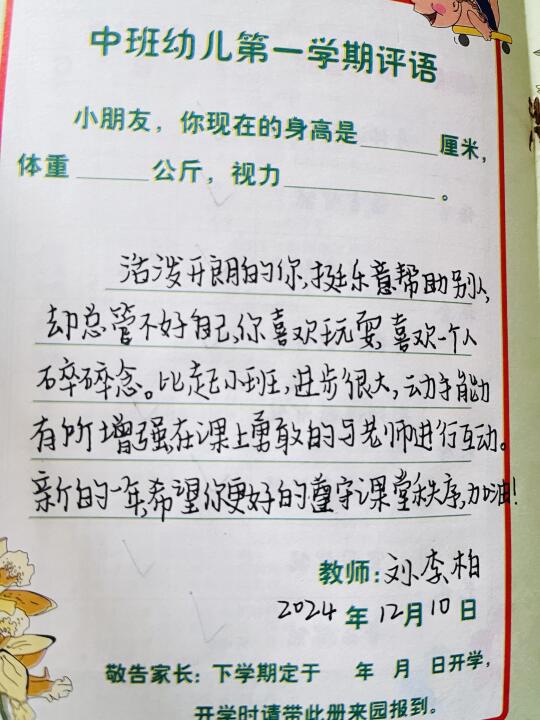 中班幼儿第一学期评语
小朋友，你现在的身高是______厘米，
体重______公斤，视力____________。
活泼开朗的你,挺乐意帮助别人,
却总管不好自己,你喜欢玩耍,喜欢一个人
碎碎念。比起小班,进步很大,动手能力
有所增强,在课上勇敢的与老师进行互动。
新的一年,希望你更好的遵守课堂秩序,加油!
教师:刘李柏
2024年12月10日
敬告家长：下学期定于 年 月 日开学，
开学时请带此册来园报到。